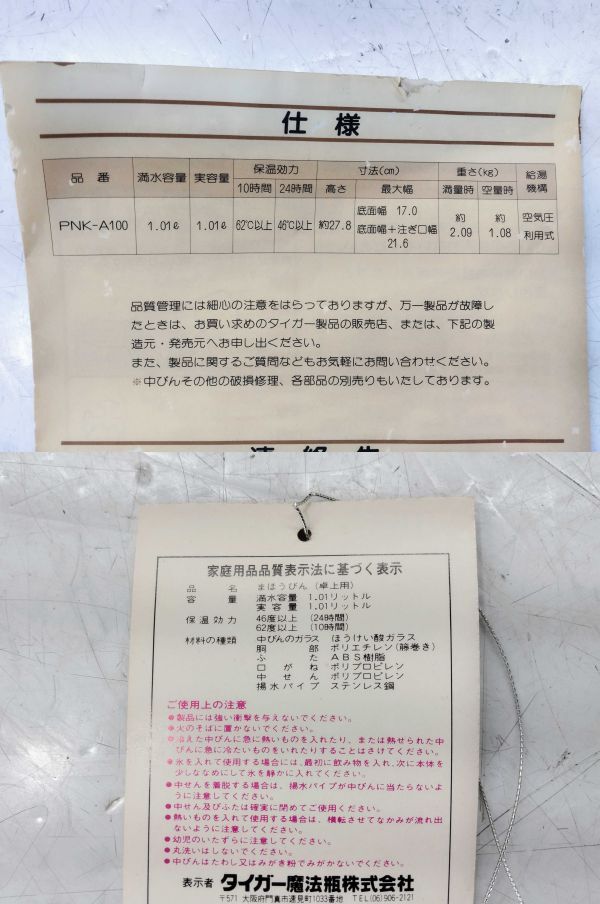 仕様
品番 満水容量 実容量 保温効力 寸法(cm) 重さ(kg) 給湯機構
10時間 24時間 高さ 最大幅 満量時 空量時
PNK-A100 1.01ℓ 1.01ℓ 62℃以上 46℃以上 約27.8 底面幅 17.0 底面幅+注ぎ口幅 21.6 約2.09 約1.08 空気圧利用式
品質管理には細心の注意をはらっておりますが、万一製品が故障し
たときは、お買い求めのタイガー製品の販売店、または、下記の製
造元・発売元へお申し出ください。
また、製品に関するご質問などもお気軽にお問い合わせください。
※中びんその他の破損修理、各部品の別売りもいたしております。
連絡先
家庭用品品質表示法に基づく表示
品名 まほうびん(卓上用)
容量 満水容量 1.01リットル
実容量 1.01リットル
保温効力 46度以上 (24時間)
62度以上 (10時間)
材料の種類 中びんのガラス ほうけい酸ガラス
胴部 ポリエチレン(籐巻き)
ふた ABS樹脂
口がね ポリプロピレン
中せん ポリプロピレン
揚水パイプ ステンレス鋼
ご使用上の注意
●製品には強い衝撃を与えないでください。
●火のそばに置かないでください。
●冷えた中びんに急に熱いものを入れたり、または熱せられた中
びんに急に冷たいものをいれたりすることはさけてください。
●氷を入れて使用する場合には、最初に飲み物を入れ、次に本体を
少しななめにして氷を静かに入れてください。
●中せんを着脱する場合は、揚水パイプが中びんに当たらないよ
うに注意してください。
●中せん及びふたは確実に閉めてご使用ください。
●熱いものを入れて使用する場合は、横転させてなかみが流れ出
ないように注意してください。
●幼児のいたずらに注意してください。
●丸洗いはしないでください。
●中びんはたわし又はみがき粉でみがかないでください。
表示者 タイガー魔法瓶株式会社
〒571 大阪府門真市速見町1033番地 TEL(06)906-2121